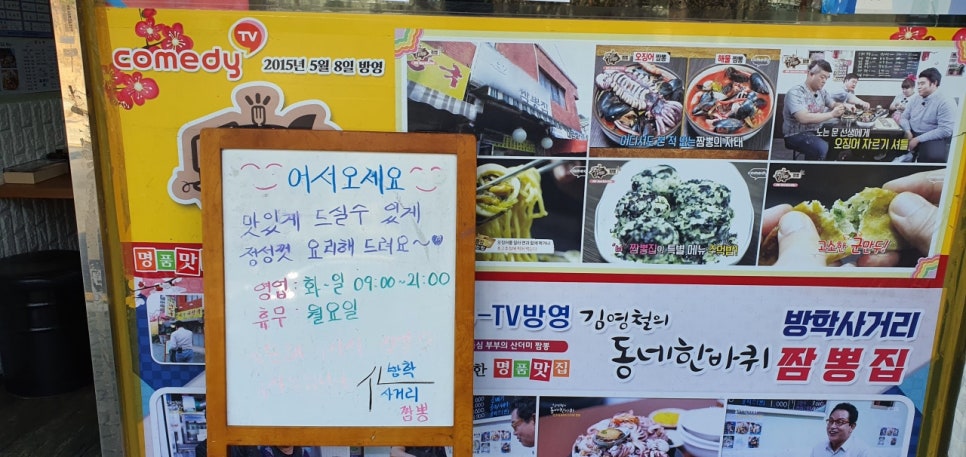 comedy TV
2015년 5월 8일 방영
어서오세요
맛있게 드실수 있게
정성껏 요리해 드려요~
영업: 화~일 09:00~21:00
휴무: 월요일
방학
사거리
짬뽕
명품맛
오징어 짬뽕
해물 짬뽕
어디서도 본 적 없는 짬뽕의 자태
노는 문 선생에게
오징어 자르기 셔틀
짬뽕집의 특별 메뉴 주먹밥!
고소한 군만두!
-TV방영
김영철의
동네한바퀴
심 부부의 산더미 짬뽕
한 명품맛집
방학사거리
짬뽕집